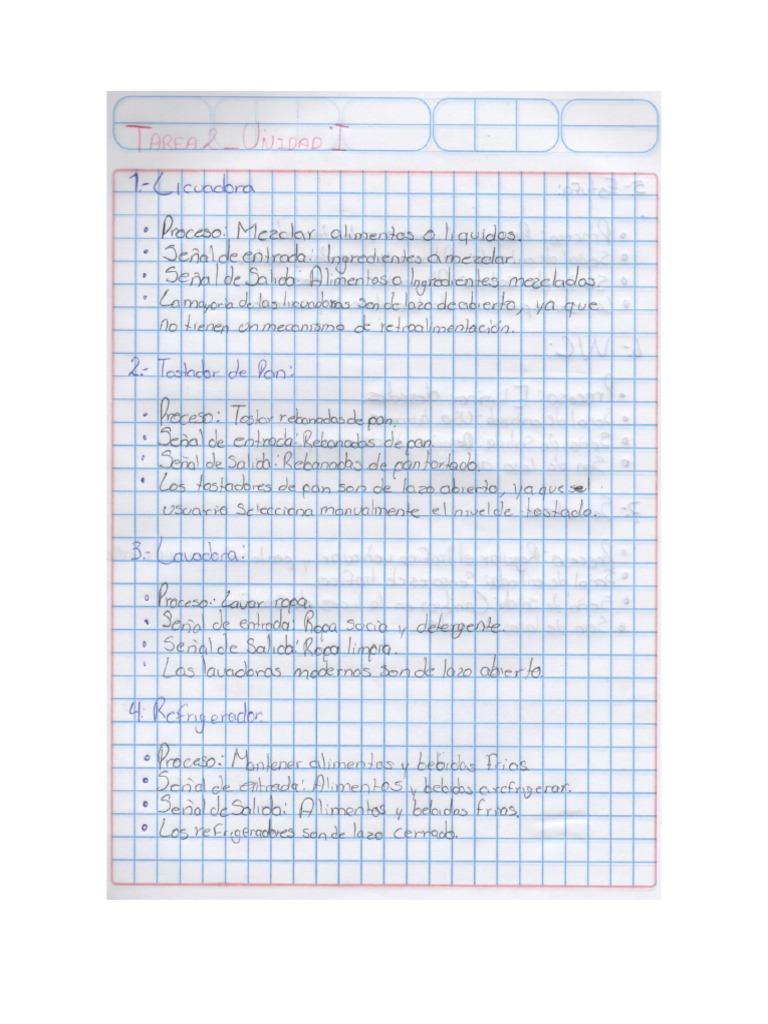 TAREA 2_UNIDAD I
1.- Licuadora
• Proceso: Mezclar alimentos o liquidos.
• Señal de entrada: Ingredientes a mezclar.
• Señal de Salida: Alimentos o Ingredientes mezclados.
• La mayoria de las licuadoras son de lazo de abierto, ya que
no tienen un mecanismo de retroalimentación.
2.- Tostador de Pan:
• Proceso: Tostar rebanadas de pan.
• Señal de entrada: Rebanadas de pan.
• Señal de Salida: Rebanadas de pan tortado.
• Los tostadores de pan son de lazo abierto, ya que el
usuario selecciona manualmente el nivel de tostado.
3.- Lavadora:
• Proceso: Lavar ropa.
• Señal de entrada: Ropa socia y detergente.
• Señal de Salida: Ropa limpia.
• Las lavadoras modernas son de lazo abierto.
4. Refrigerador.
• Proceso: Mantener alimentos y bebidas frios
• Señal de entrada: Alimentos y bebidas a refrigerar.
• Señal de Salida: Alimentos y bebidas frios.
• Los refrigeradores son de lazo cerrado.